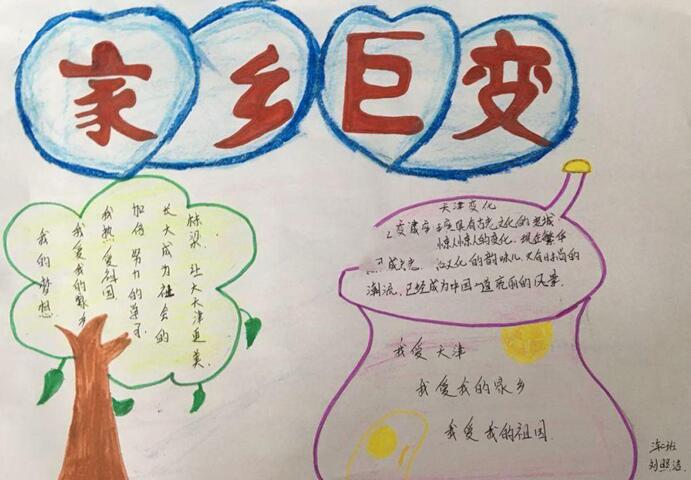 家乡巨变
我的梦想
我爱我的家乡
我热爱祖国
加倍努力的学习
长大成为社会的
栋梁.让大天津更美.
天津变化
文化的老城
的变化.现在繁华
文化的韵味儿又有时尚的
潮流.已经成为中国一道亮丽的风景.
我爱天津
我爱我的家乡
我爱我的祖国.
刘照洁